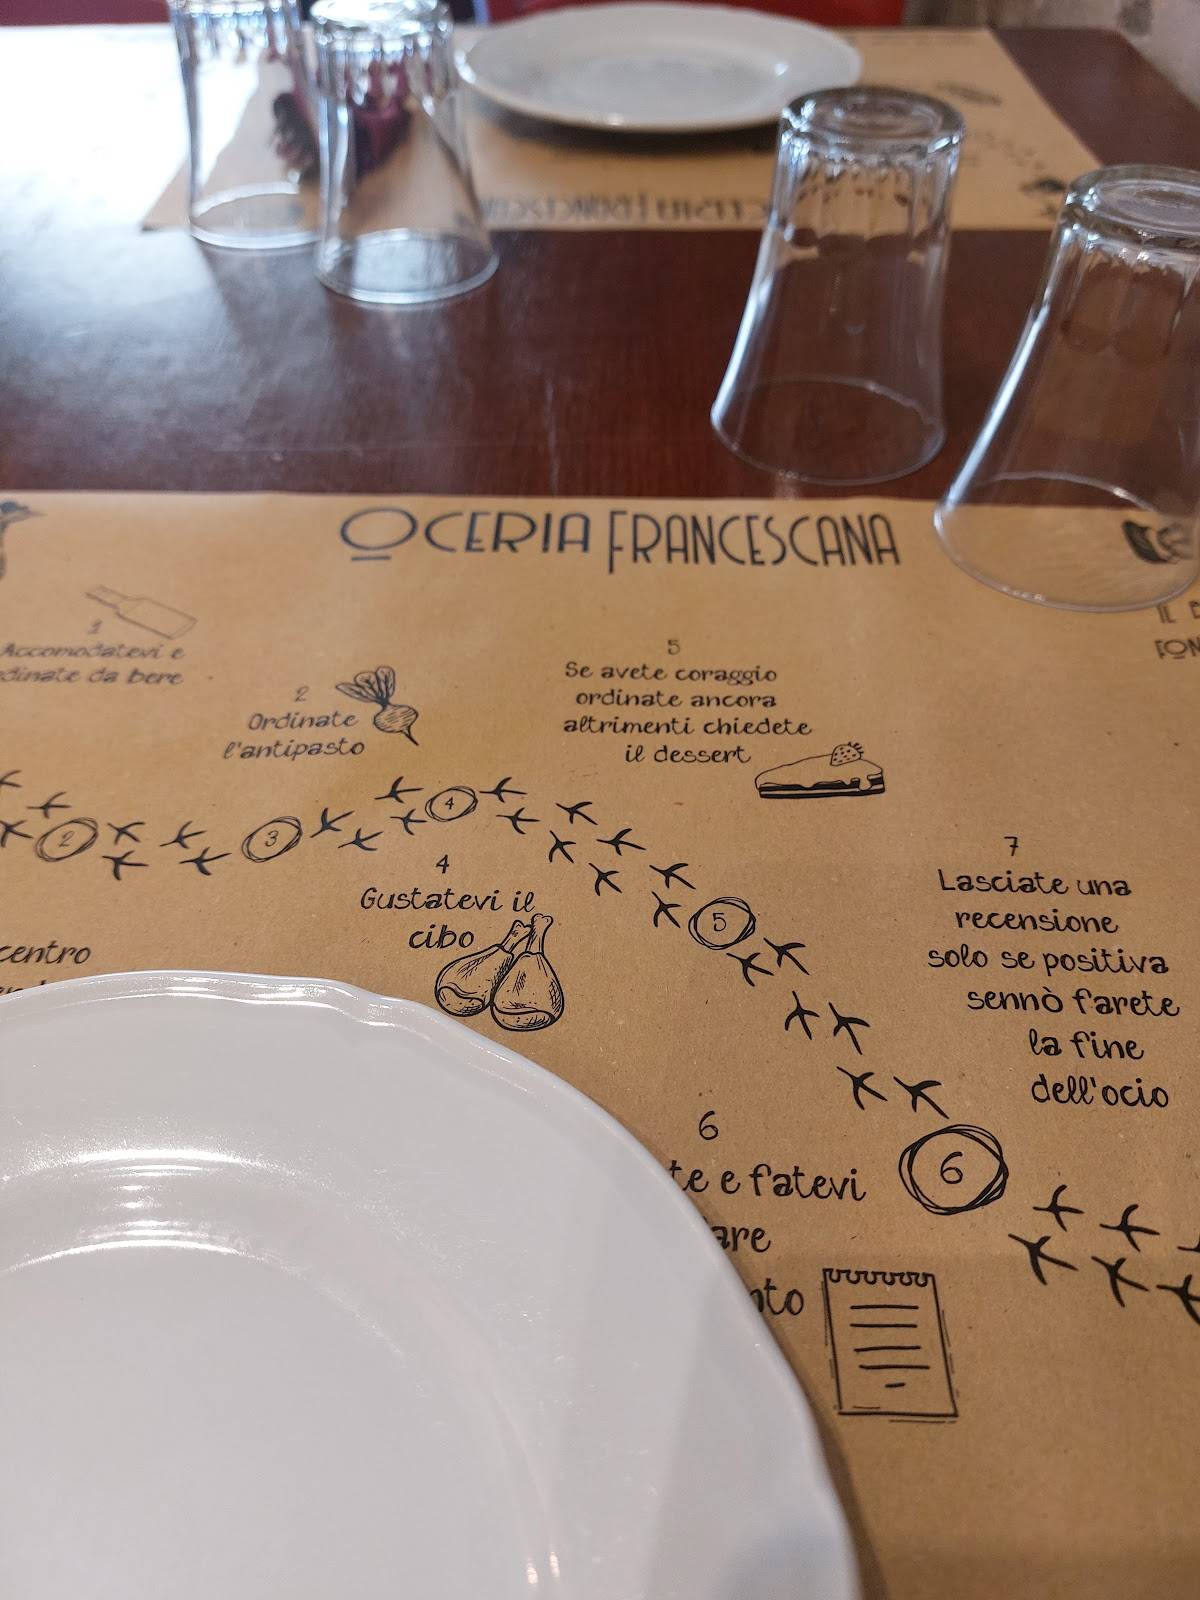 OCERIA FRANCESCANA
IL
1
Accomodatevi e
dinate da bere
2
Ordinate
l'antipasto
5
Se avete coraggio
ordinate ancora
altrimenti chiedete
il dessert
2
3
4
4
Gustatevi il
cibo
5
centro
7
Lasciate una
recensione
solo se positiva
sennò farete
la fine
dell'ocio
6
te e fatevi
are
nto
6